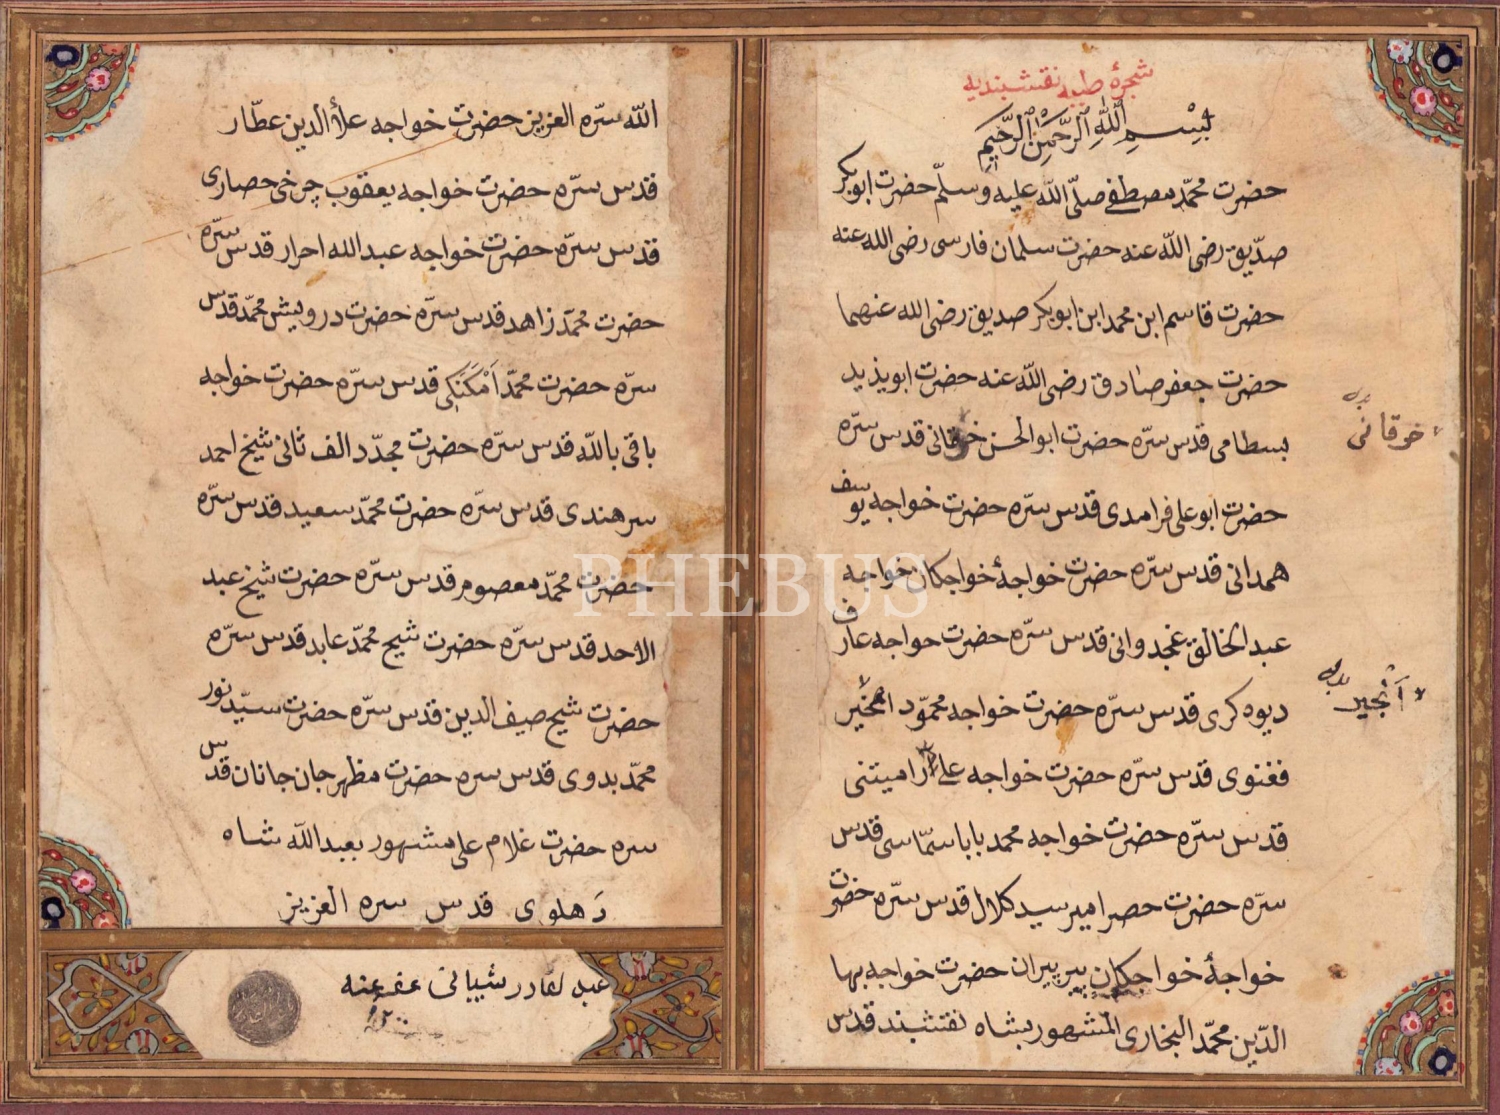 شجرهٔ طیبه نقشبندیه
بِسْمِ اللّٰهِ الرَّحْمٰنِ الرَّحِیمِ
حضرت محمّد مصطفی صلّی اللّه علیه وسلّم حضرت ابوبکر
صدّیق رضی اللّه عنه حضرت سلمان فارسی رضی الله عنه
حضرت قاسم ابن محمد ابن ابوبکر صدیق رضی الله عنهما
حضرت جعفر صادق رضی اللّه عنه حضرت ابویذید
بسطامی قدس سرّه حضرت ابوالحسن خرقانی قدس سرّه
خرقانی
حضرت ابوعلی فرامدی قدس سرّه حضرت خواجه یوسف
همدانی قدس سرّه حضرت خواجهٔ خواجکان خواجه
عبدالخالق غجدوانی قدس سرّه حضرت خواجه عارف
دیوه کری قدس سرّه حضرت خواجه محمود انجیر
اَنْجیر
فغنوی قدس سرّه حضرت خواجه علی رامیتنی
قدس سرّه حضرت خواجه محمد بابا سمّاسی قدس
سرّه حضرت حصر امیر سید کلال قدس سرّه حضرت
خواجهٔ خواجکان پیر پیران حضرت خواجه بها
الدّین محمّد البخاری المشهور بشاه نقشبند قدّس
اللّه سرّه العزیز حضرت خواجه علأالدین عطّار
قدس سرّه حضرت خواجه یعقوب چرخی حصاری
قدس سرّه حضرت خواجه عبدالله احرار قدس سرّه
حضرت محمّد زاهد قدس سرّه حضرت درویش محمّد قدّس
سرّه حضرت محمّد اَمْکَنَکِی قدس سرّه حضرت خواجه
باقی باللّه قدس سرّه حضرت مجدّد الف ثانی شیخ احمد
سرهندی قدس سرّه حضرت محمّد سعید قدس سرّه
حضرت محمّد معصوم قدس سرّه حضرت شیخ عبد
الاحد قدس سرّه حضرت شیخ محمّد عابد قدس سرّه
حضرت شیخ صیف الدین قدس سرّه حضرت سیّد نور
محمّد بدوی قدس سره حضرت مظهر جان جانان قدّس
سره حضرت غلام علی مشهور بعبد اللّه شاه
دَهلوی قدس سره العزیز
عبد لقادر شیبانی عفی عنه
۱۲۰۰
PHEBUS